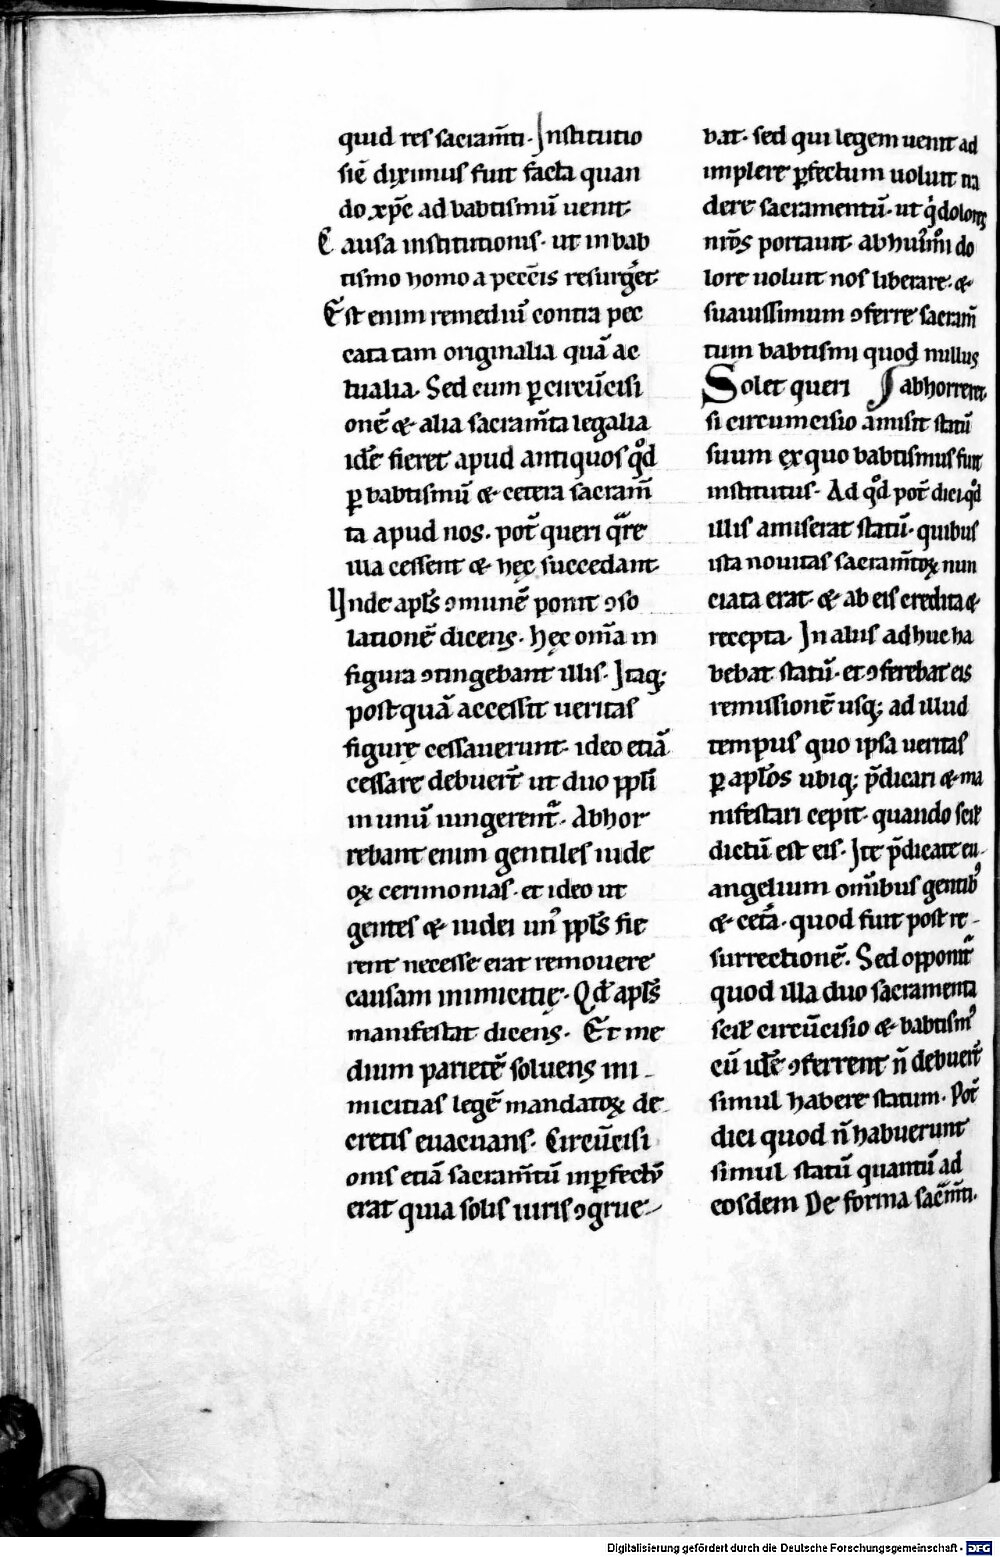 quid res sacram̅ti. Institutio
sic̅ diximus fuit facta quan
do xp̅c ad babtismu̅ uenit.
Causa institutionis. ut in bab
tismo homo a pecc̅is resurg̅et.
E̅st enim remediu̅ contra pec
cata tam originalia qua̅ ac
tualia. Sed cum ꝑ circu̅cisi
one̅ & alia sacram̅ta legalia
ide̅ fieret apud antiquos qͦd
ꝑ babtismu̅ & cetera sacram̅
ta apud nos. pot̅ queri qͣre
illa cessent & hęc succedant.
Unde apl̅s ꝯmune̅ ponit ꝯso
latione̅ dicens. hęc om̅a in
figura ꝯtingebant illis. Itaq;
postqua̅ accessit ueritas
figurę cessauerunt. ideo etia̅
cessare debuer̅t ut duo ppl̅i
in unu̅ iungerent̅. Abhor
rebant enim gentiles iude
oꝝ cerimonias. et ideo ut
gentes & iudei un᾽ ppl̅s fie
rent necesse erat remouere
causam inimicitię. Qd̅ apl̅s
manifestat dicens. Et me
dium pariete̅ soluens ini
micitias lege̅ mandatoꝝ de
cretis euacuans. Circu̅cisi
onis etia̅ sacram̅tu̅ inꝑfectu̅
erat quia solis uiris ꝯgrue
bat. sed qui legem uenit ad
implere ꝑfectum uoluit tra
dere sacramentu̅. ut qͥ dolores
nr̅os portauit. ab hui᾽mͦi do
lore uoluit nos liberare. &
suauissimum ꝯferre sacram̅
tum babtismi quod nullus
abhorreret.
Solet queri
si circumcisio amisit statu̅
suum ex quo babtismus fuit
institutus. Ad qͦd pot̅ dici qͦd
illis amiserat statu̅. quibus
ista nouitas sacram̅toꝝ nun
ciata erat. & ab eis credita &
recepta. In aliis adhuc ha
bebat statu̅. et ꝯferebat eis
remissione̅ usq; ad illud
tempus quo ipsa ueritas
ꝑ apl̅os ubiq; p̅dicari & ma
nifestari cepit. quando scil̅
dictu̅ est eis. Ite p̅dicate eu
angelium omi̅bus gentib᾽
& cet̅a. quod fuit post re
surrectione̅. Sed opponit̅
quod illa duo sacramenta
scil̅ circu̅cisio & babtism᾽
cu̅ ide̅ ꝯferrent n̅ debuer̅t
simul habere statum. Pot̅
dici quod n̅ habuerunt
simul statu̅ quantu̅ ad
eosdem De forma sacm̅ti.
Digitalisierung gefördert durch die Deutsche Forschungsgemeinschaft - DFG